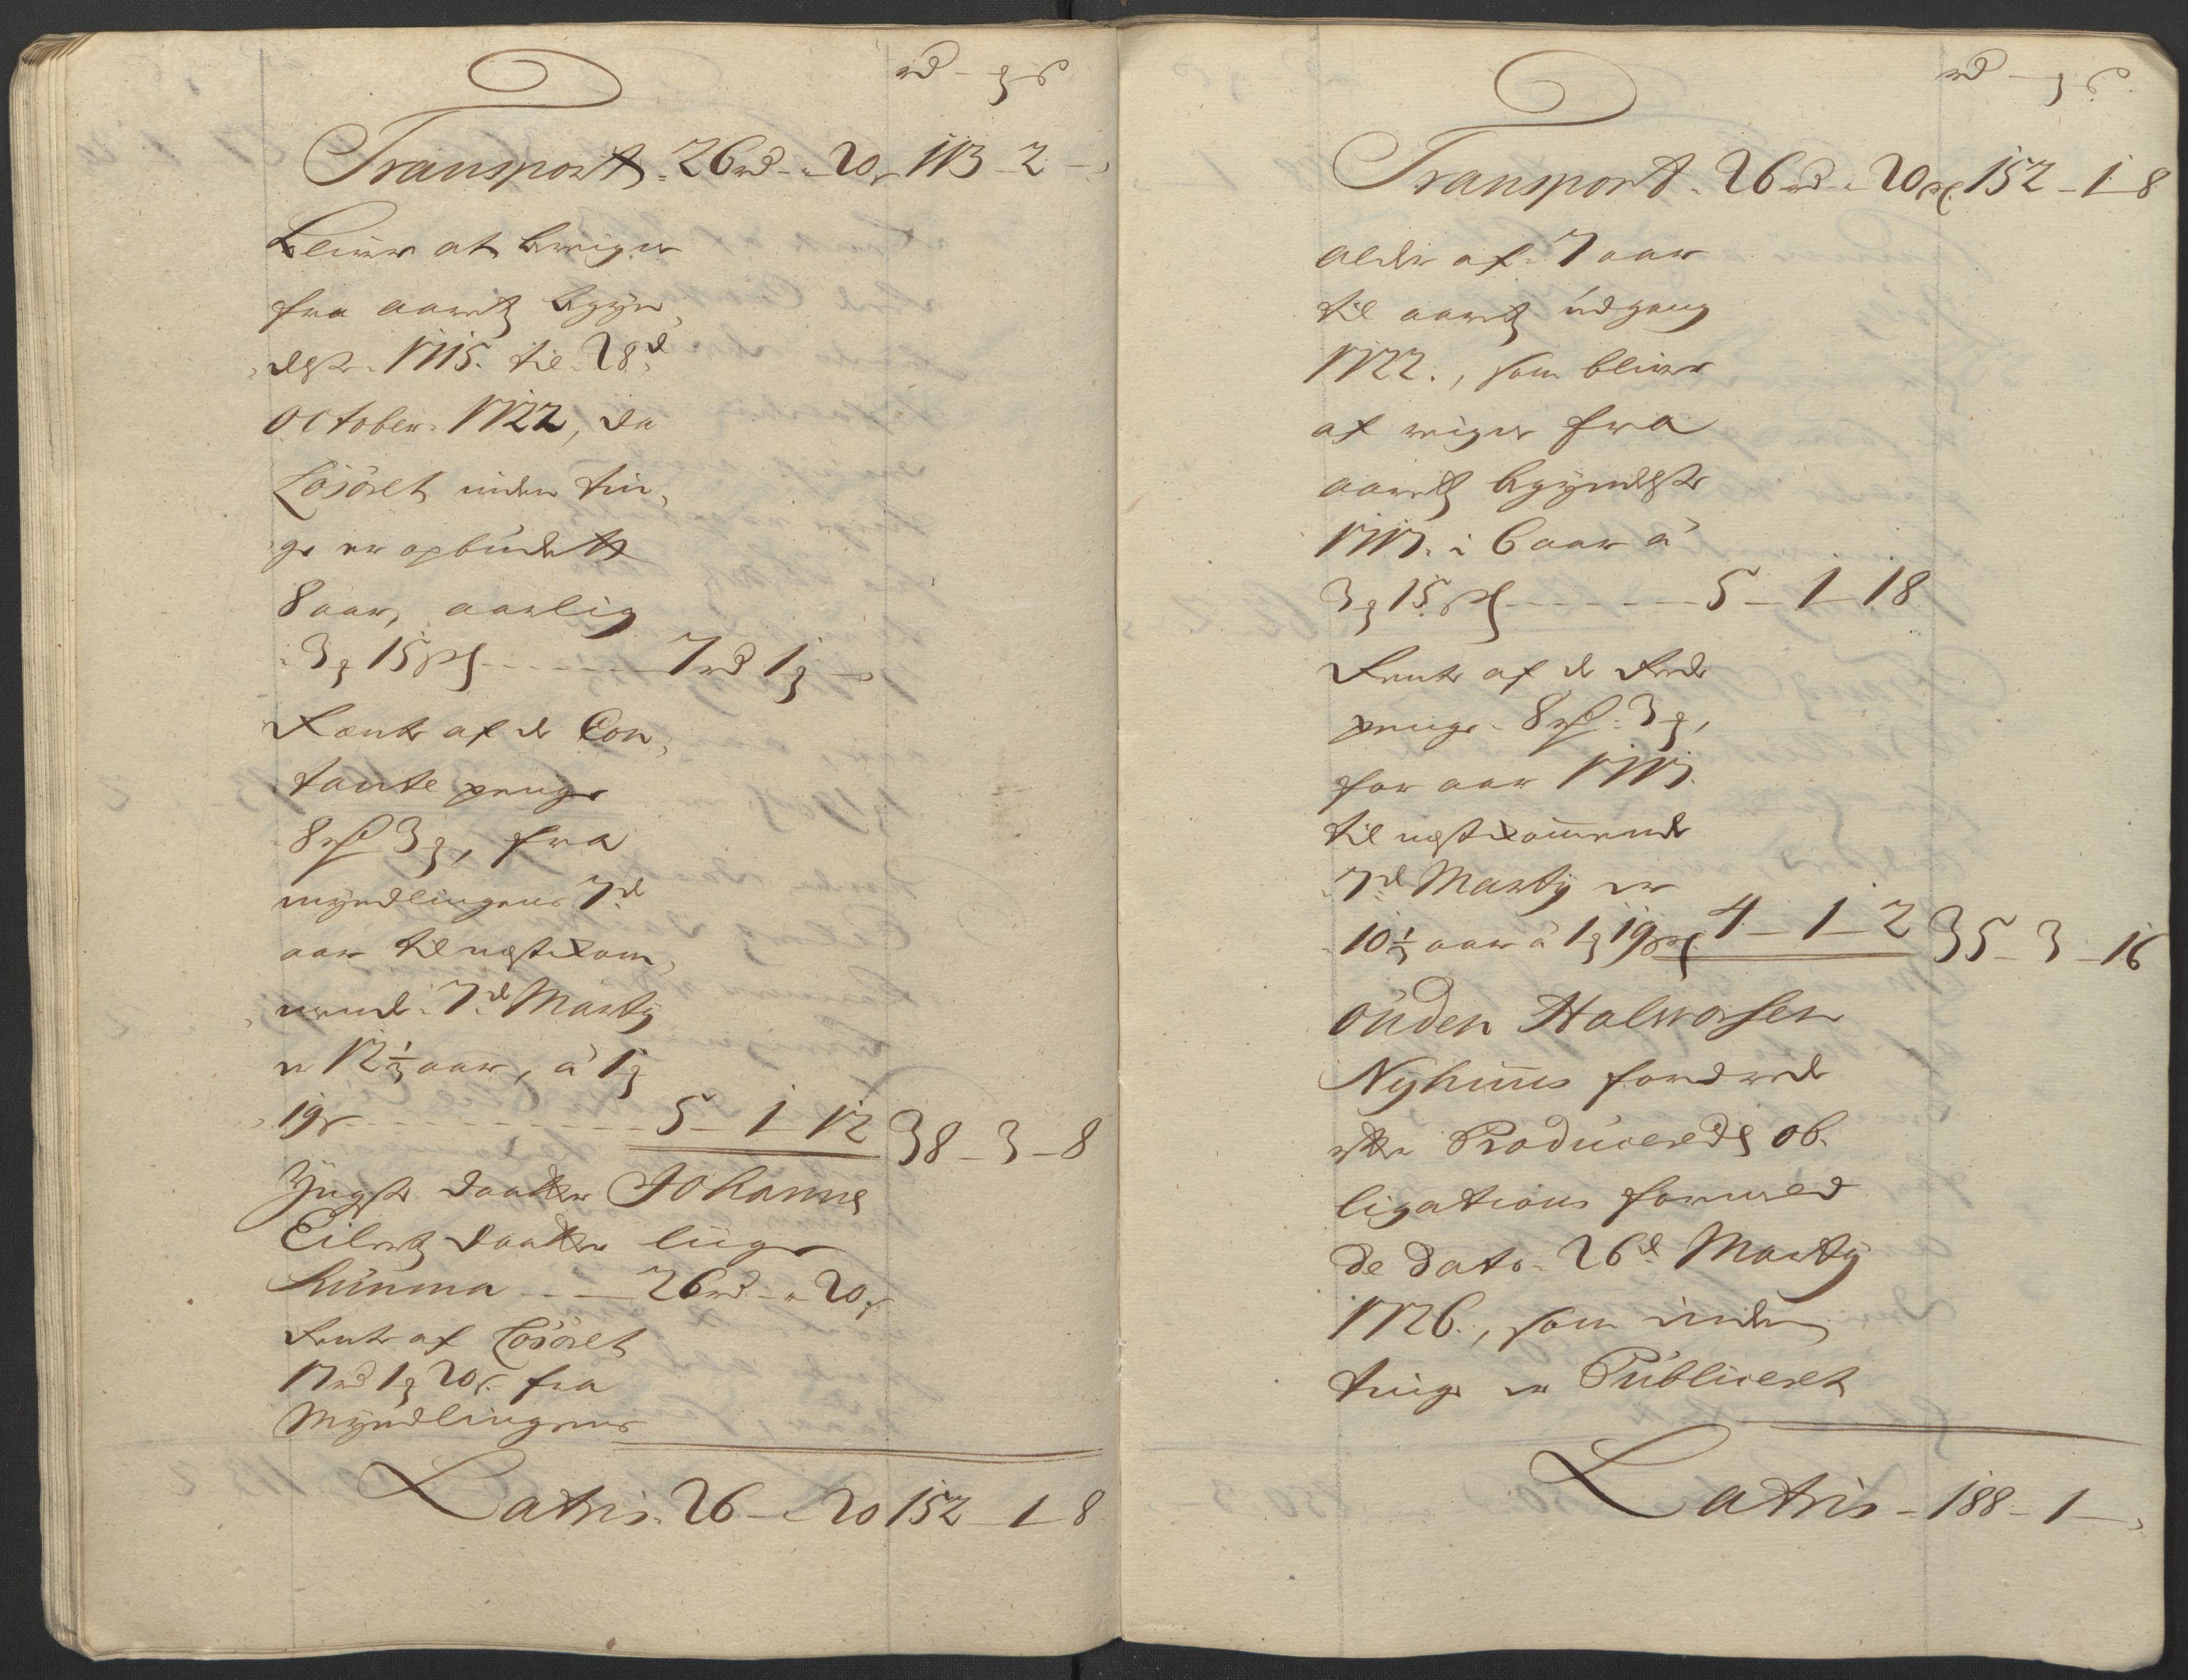 rd - ȝ - s
Transport. 26 rd - " 20 s 113 - 2 -
bliver at beregne
fra aarets begyn,
delse. 1715. til 28d
October. 1722, da
Løsøret inden tin,
ge er opbudet
8 aar, aarlig
3 ȝ 15 s - - - - 7 rd 1 ȝ -
Rente af de Con,
tante penge
8 rd 3 ȝ, fra
myndlingens 7de
aar til nestkom,
mende 7d Marty
er 12 1/3 aar, à 1 ȝ
19 s - - - - 5 - 1 - 12 38 - 3 - 8
Yngste daatter Johanne
Eilerts daatter liige
Summa - - - 26 rd - " 20 s
Rente af Løsøret
17 rd 1 ȝ 20 s. fra
Myndlingens
Latris. 26 - " 20 152 - 1 - 8
rd - ȝ s
Transport. 26 rd - " 20 s 152 - 1 - 8
alder af 7 aar
til aarets udgang
1722., som bliver
at reigne fra
aarets begyndelse
1717. i 6 aar à
3 ȝ 15 s - - - - 5 - 1 - 18
Rente af de Rede
penge 8 rd 3 ȝ,
for aar 1717.
til nestkommende
7d Marty er
10 1/3 aar à 1 ȝ 19 s 4 - 1 - 2 35 - 3 - 16
Ouden Halvorsen
Nyhuus fordrede
efter Produceredes ob.
ligations formeld
de dato. 26d Marty
1726., som inden
tinge er Publiceret
Latris - 188 - 1 -